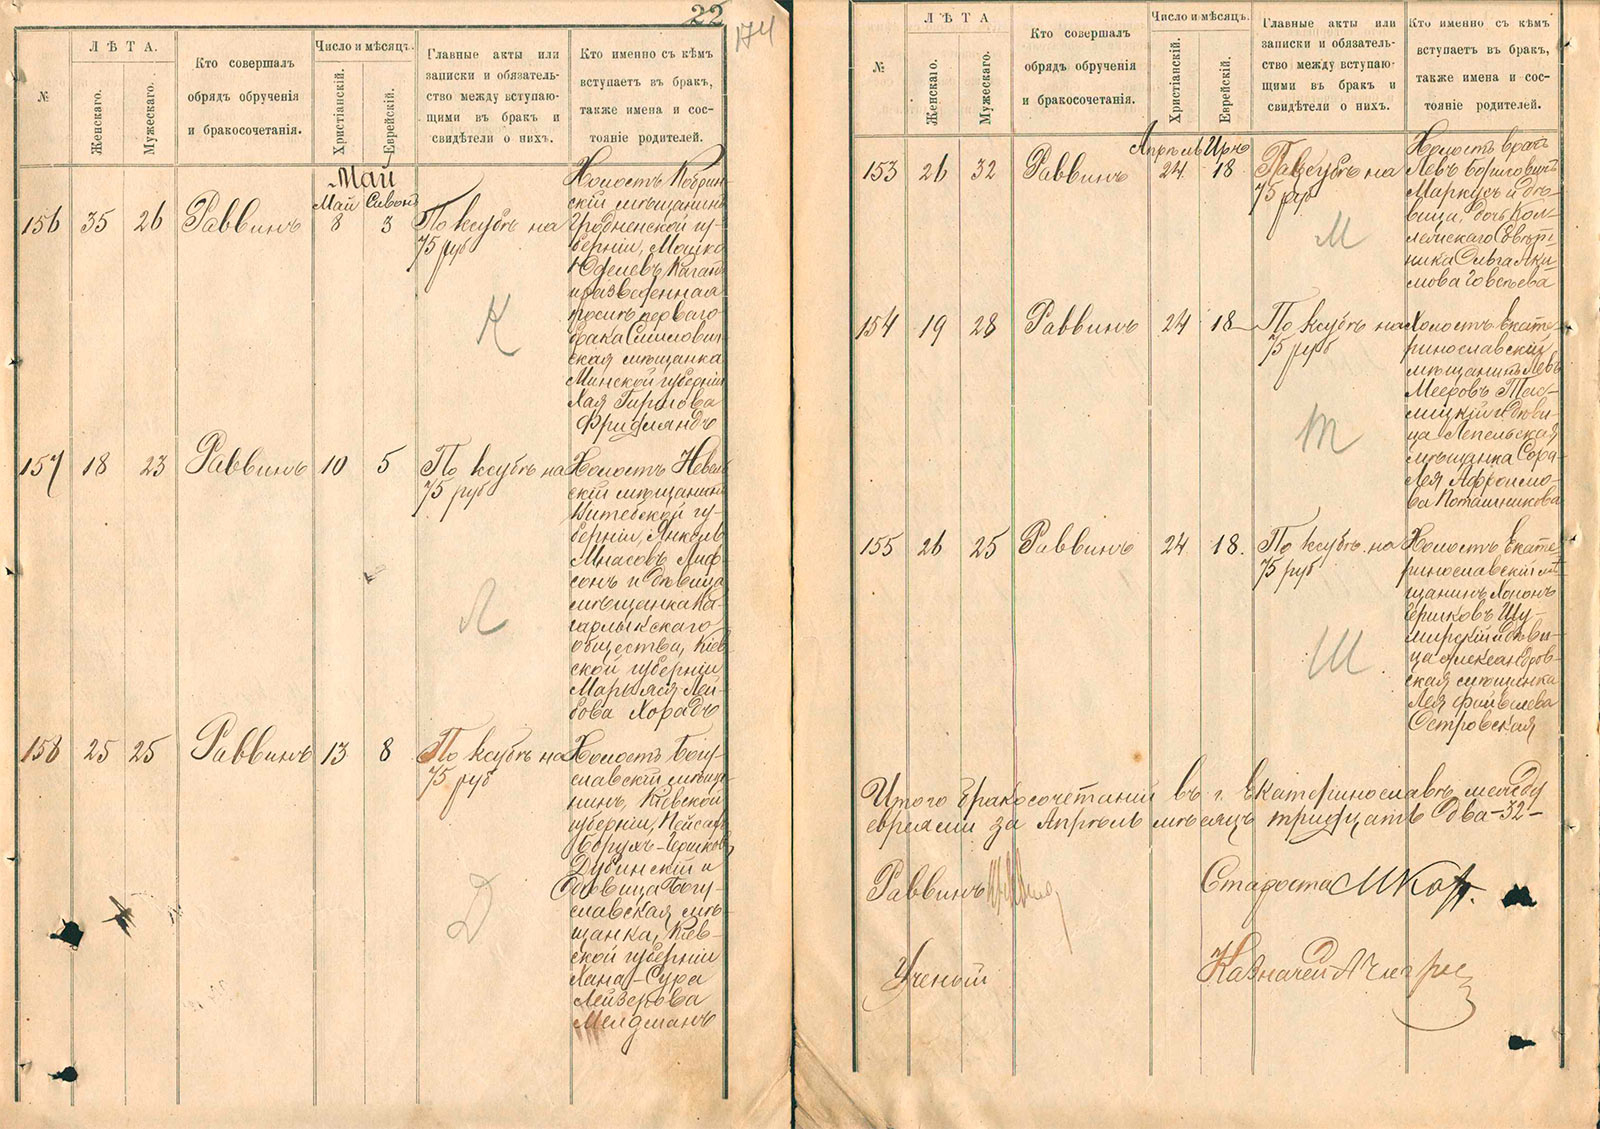 22
174
№
ЛѢТА.
Женскаго.
Мужескаго.
Кто совершалъ
обрядъ обрученія
и бракосочетанія.
Число и мѣсяцъ.
Христіанскій.
Еврейскій.
Главные акты или
записки и обязатель-
ство между вступаю-
щими въ бракъ и
свидѣтели о нихъ.
Кто именно съ кѣмъ
вступаетъ въ бракъ,
также имена и сос-
тояніе родителей.
Май
Май Сивонъ
156 35 26 Раввинъ 8 3
По ксубѣ на
75 руб
К
Холостъ Кобрин-
скій мѣщанинъ
Гродненской гу-
берніи, Мошко
Юделевъ Каганъ
и разведенная
послѣ перваго
брака Смилович-
ская мѣщанка
Минской губерніи
Хая Гиршова
Фридляндъ
157 18 23 Раввинъ 10 5
По ксубѣ на
75 руб
Л
Холостъ Невель-
скій мѣщанинъ
Витебской гу-
берніи, Янкель
Мнасовъ Лиф-
сонъ и дѣвица
мѣщанка Ка-
гарлыкскаго
общества, Кіев-
ской губерніи
Марьяся Лей-
бова Хорадъ
158 25 25 Раввинъ 13 8
По ксубѣ на
75 руб
Д
Холостъ Богу-
славскій мѣща-
нинъ, Кіевской
губерніи, Пейсахъ
Борухъ-Гершковъ
Дубинскій и
дѣвица Богу-
славская мѣ-
щанка, Кіев-
ской губерніи
Хана-Сура
Лейзерова
Мелдманъ
№
ЛѢТА
Женскаго.
Мужескаго.
Кто совершалъ
обрядъ обрученія
и бракосочетанія.
Число и мѣсяцъ.
Христіанскій.
Еврейскій.
Главные акты или
записки и обязатель-
ство между вступаю-
щими въ бракъ и
свидѣтели о нихъ.
Кто именно съ кѣмъ
вступаетъ въ бракъ,
также имена и сос-
тояніе родителей.
Апрѣль Иръ
153 26 32 Раввинъ 24 18
По ксубѣ на
75 руб
М
Холостъ врачъ
Левъ Бориловичъ
Маркусъ и дѣ-
вица, дочь Кол-
лежскаго Совѣт-
ника Ольга Яки-
мова Говсѣева
154 19 28 Раввинъ 24 18
По ксубѣ на
75 руб
Т
Холостъ Екате-
ринославскій
мѣщанинъ Левъ
Мееровъ Теп-
лицкій и дѣви-
ца Лепельская
мѣщанка Сора-
Лея Афроимо-
ва Поташникова
155 26 25 Раввинъ 24 18.
По ксубѣ на
75 руб
Ш
Холостъ Екате-
ринославскій мѣ-
щанинъ Хононъ
Гершковъ Шу-
мирскій и дѣви-
ца Александров-
ская мѣщанка
Лея Файвелева
Островская
Итого бракосочетаній въ г. Екатеринославѣ между
евреями за Апрѣль мѣсяцъ тридцать два - 32 -
Раввинъ
Староста
Ученый
Казначей